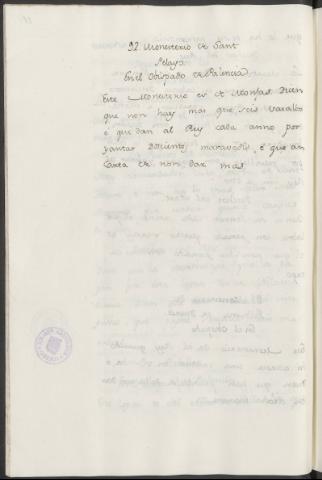 El Monesterio de Sant
Pelayo
En el Obispado de Palencia
Este Monesterio es de Monjas Dicen
que non hay mas que seis Vasallos
é que dan al Rey cada anno por
yantar Docientos maravedis, é que an
Carta de non dar mas